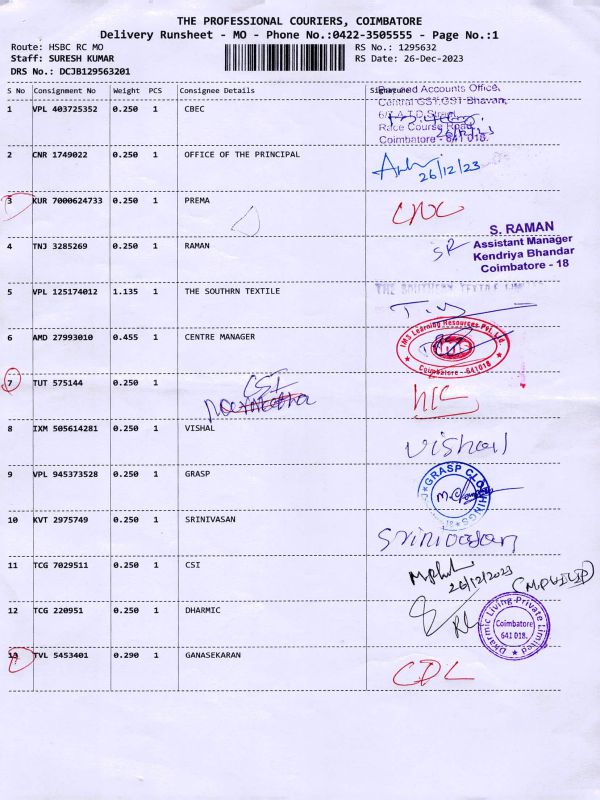 THE PROFESSIONAL COURIERS, COIMBATORE
Delivery Runsheet - MO - Phone No.:0422-3505555 - Page No.:1
Route: HSBC RC MO
RS No.: 1295632
Staff: SURESH KUMAR
RS Date: 26-Dec-2023
DRS No.: DCJB129563201
S No Consignment No Weight PCS Consignee Details Signature
Accounts Office,
Central GST,GST Bhavan,
1 VPL 403725352 0.250 1 CBEC
Race Course Road,
Coimbatore - 641 018.
2 CNR 1749022 0.250 1 OFFICE OF THE PRINCIPAL
26/12/23
3 KUR 7000624733 0.250 1 PREMA
CNC
4 TNJ 3285269 0.250 1 RAMAN SR
S. RAMAN
Assistant Manager
Kendriya Bhandar
Coimbatore - 18
5 VPL 125174012 1.135 1 THE SOUTHRN TEXTILE
THE SOUTHERN TEXTILE
6 AMD 27993010 0.455 1 CENTRE MANAGER
IMS Learning Resources Pvt. Ltd.
Coimbatore - 641018
7 TUT 575144 0.250 1 CSI
8 IXM 505614281 0.250 1 VISHAL
Vishal
9 VPL 945373528 0.250 1 GRASP
GRASP CLOTHINGS
10 KVT 2975749 0.250 1 SRINIVASAN
Srinivasan
11 TCG 7029511 0.250 1 CSI
26/12/2023
(M.PHILIP)
12 TCG 220951 0.250 1 DHARMIC
Dharmic Living Private Limited
Coimbatore
641 018.
13 TVL 5453401 0.290 1 GANASEKARAN
CDL